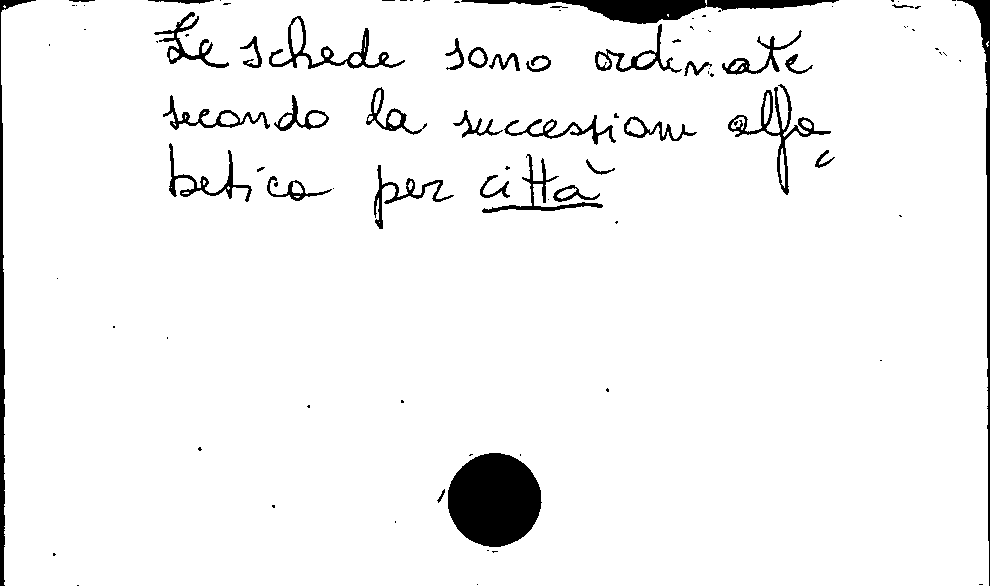 Le schede sono ordinate
secondo la successione alfa
betica per città